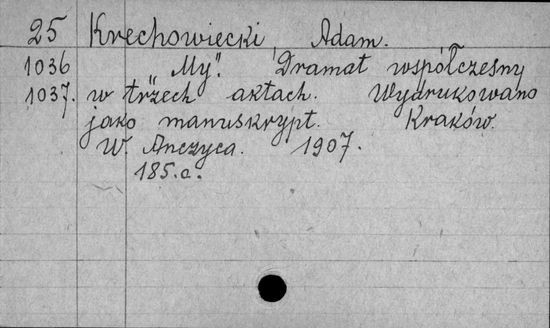 25 Krechowiecki, Adam.
1036 "My". Dramat współczesny
1037. w trzech aktach. Wydrukowano
jako manuskrypt. Kraków.
W. Anczyca. 1907.
185.a.